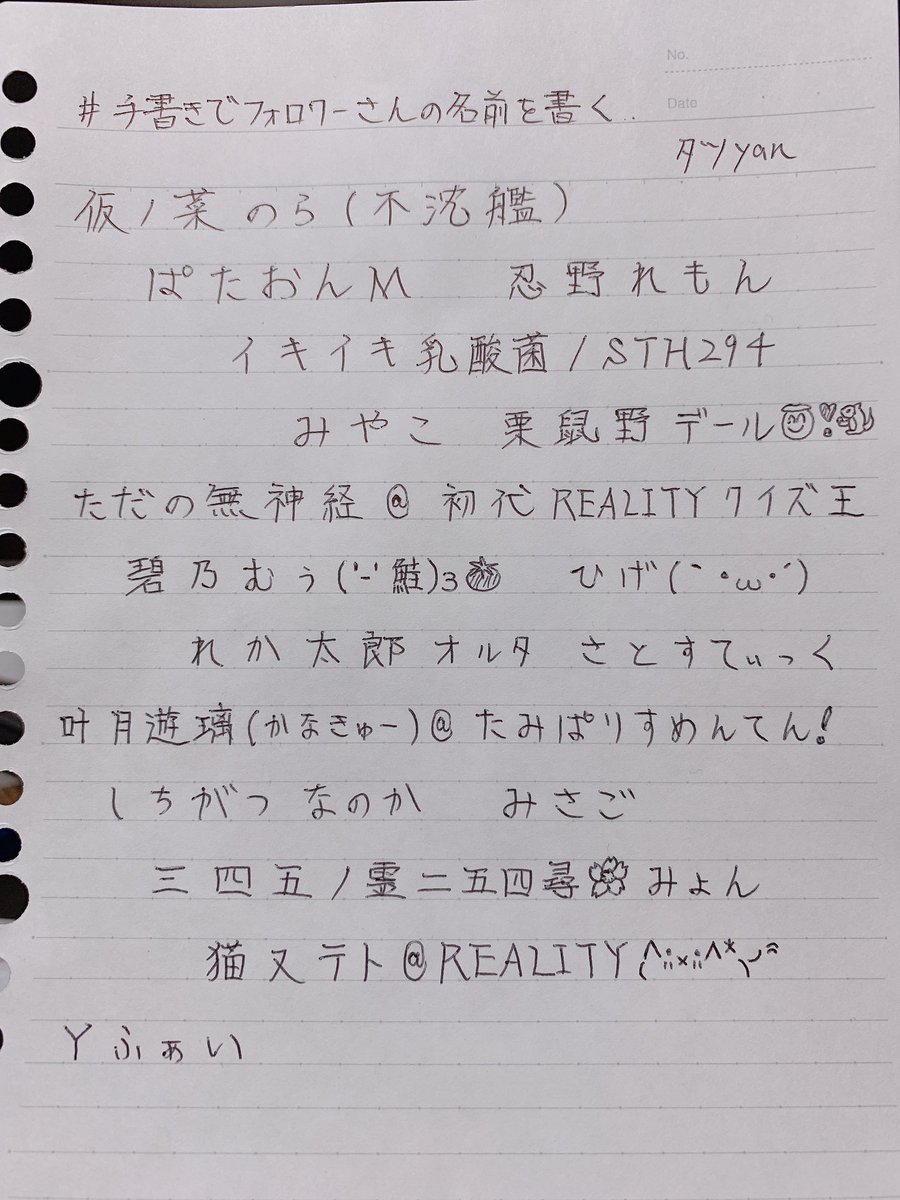 No.
#手書きでフォロワーさんの名前を書く
Date
タツyan
仮ノ菜のら(不沈艦)
ぱたおんM 忍野れもん
イキイキ乳酸菌/STH294
みやこ 栗鼠野デール
ただの無神経@初代REALITYクイズ王
碧乃むぅ('-'鮭)3 ひげ(｀・ω・´)
れか太郎オルタ さとすてぃっく
叶月遊璃(かなきゅー)@たみぱりすめんてん!
しちがつなのか みさご
三四五ノ霊二五四尋🌸みょん
猫又テト@REALITY
Yふぁい